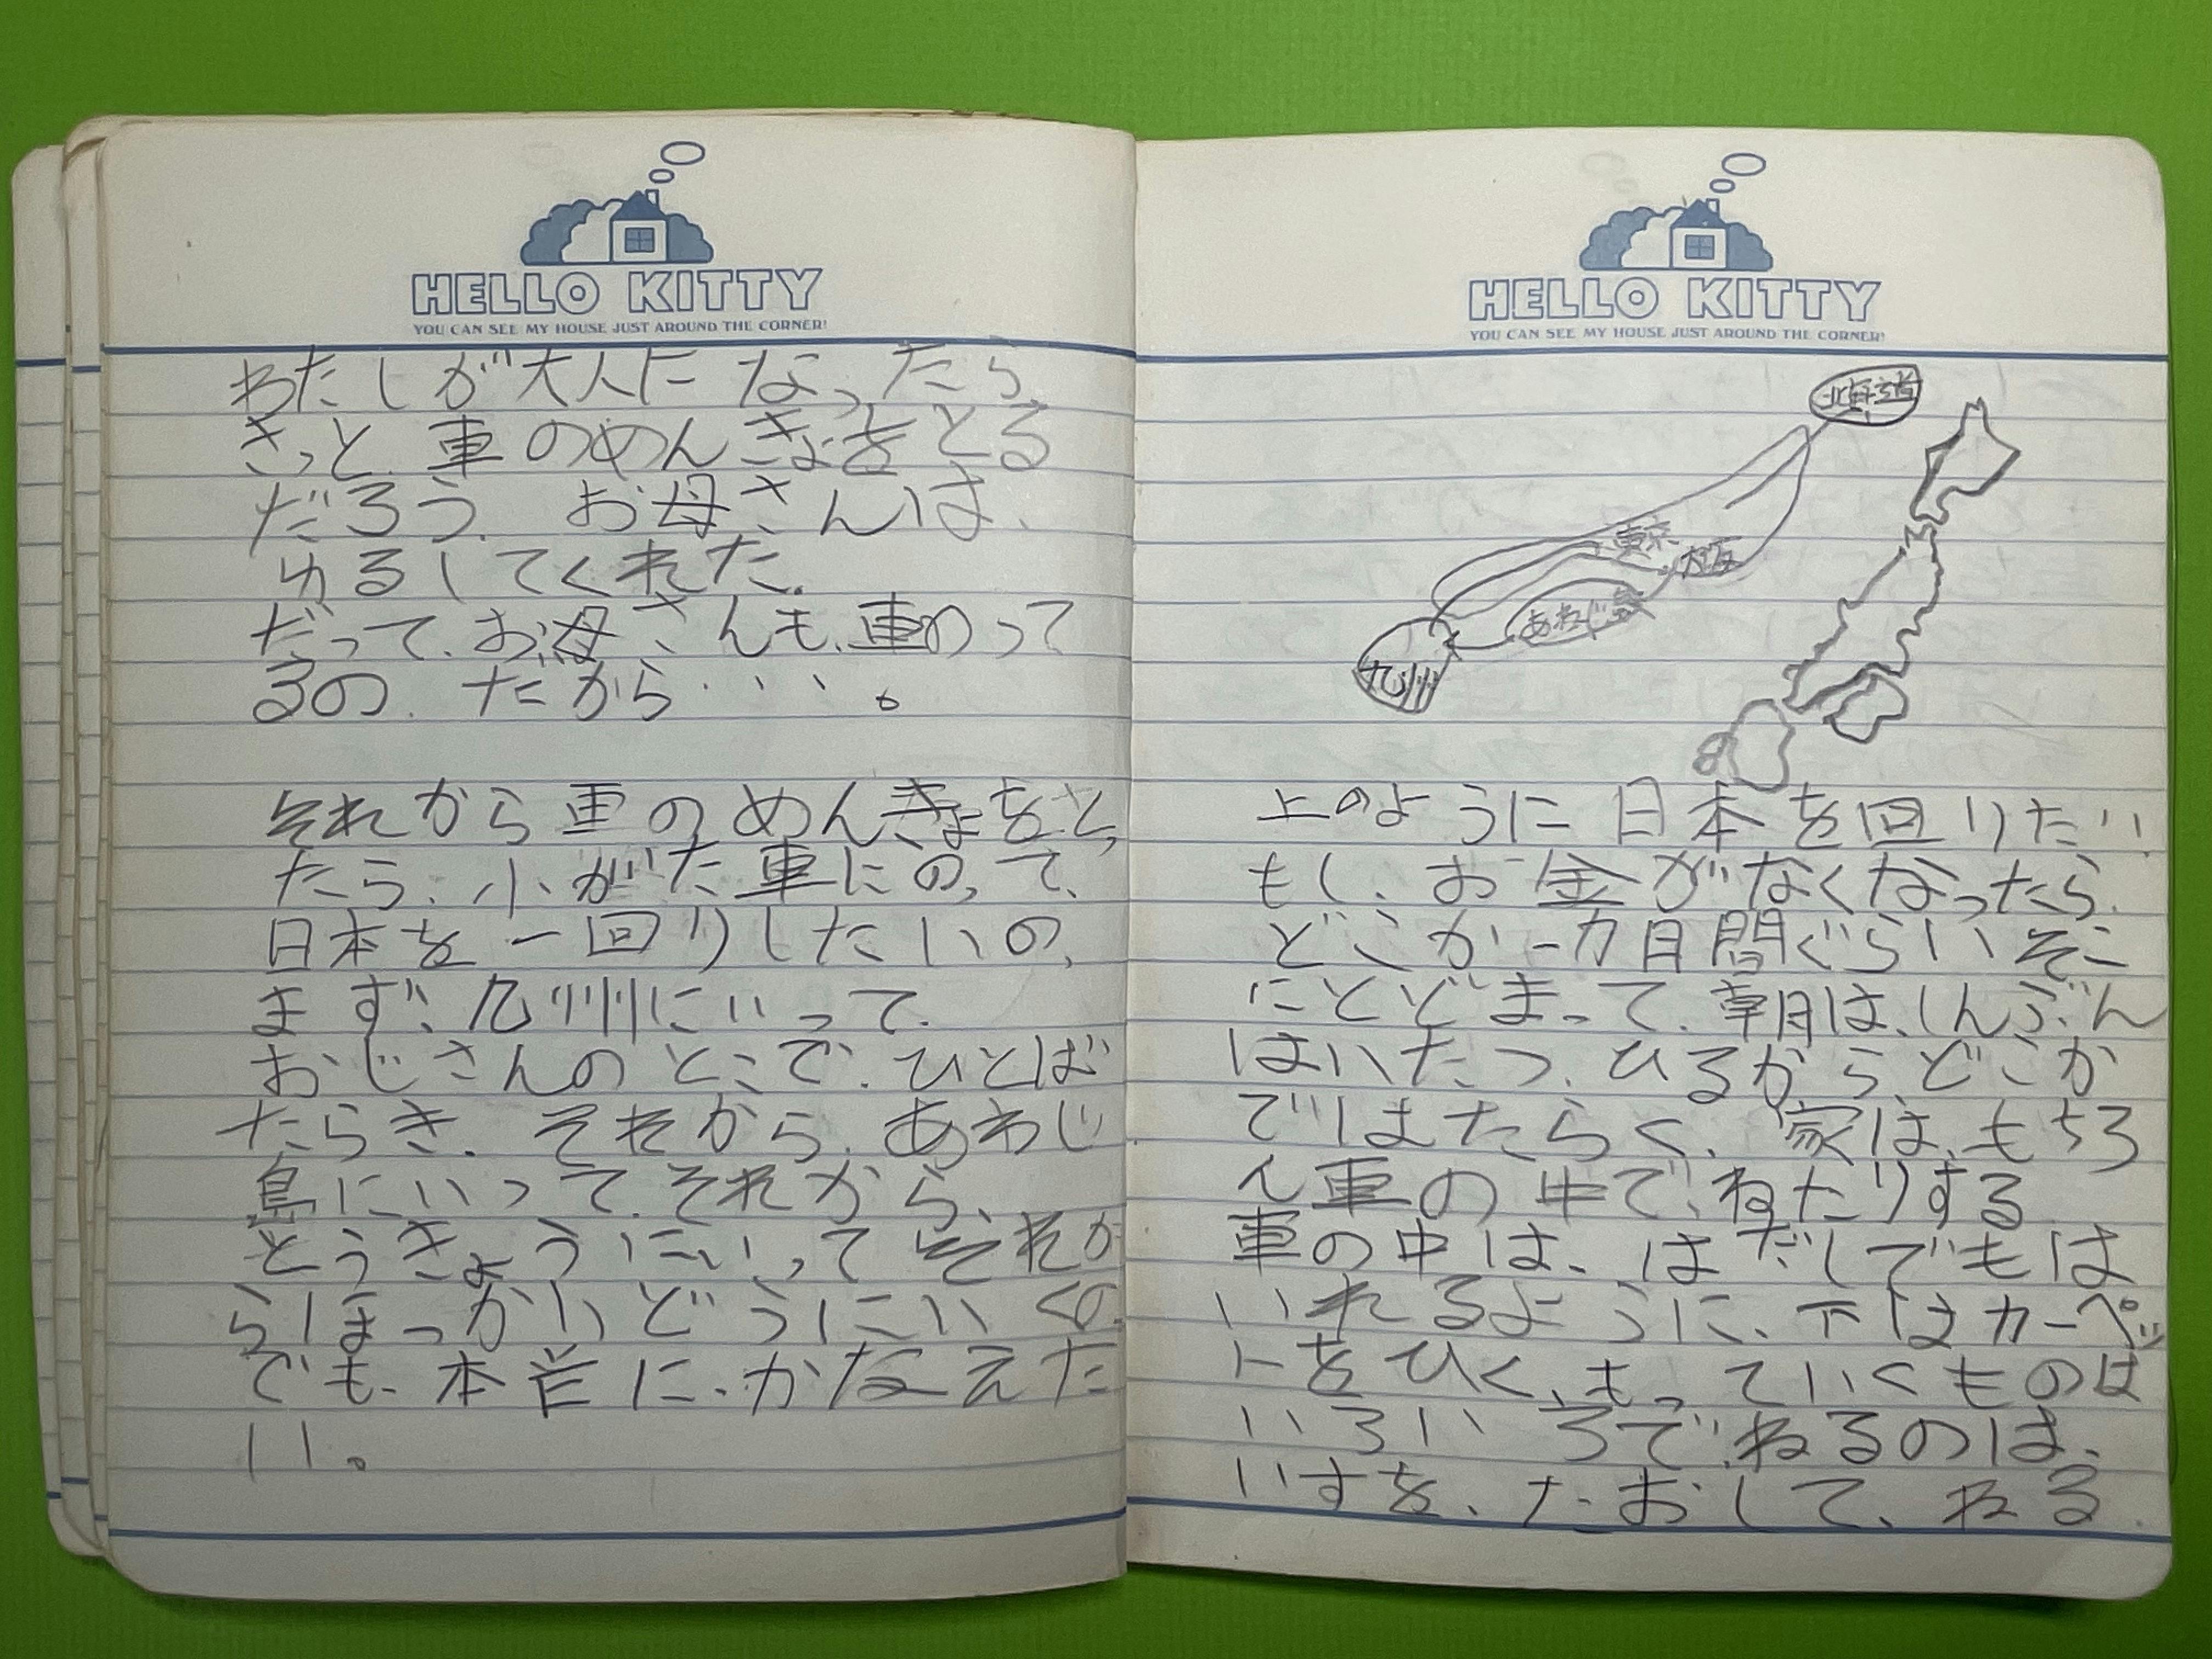 HELLO KITTY
YOU CAN SEE MY HOUSE JUST AROUND THE CORNER!
わたしが大人になったら
きっと、車のめんきょをとる
だろう。お母さんは、
ゆるしてくれた。
だって、お母さんも、車のって
るの。だから・・・。
それから車のめんきょをとっ
たら、小がた車にのって、
日本を一回りしたいの、
まず、九州にいって、
おじさんのとこで、ひとば
たらき、それから、あわじ
島にいって、それから、
とうきょうにいってそれか
らほっかいどうにいくの
でも、本当に、かなえた
い。
HELLO KITTY
YOU CAN SEE MY HOUSE JUST AROUND THE CORNER!
北海道
東京
大阪
あわじ島
九州
上のように日本を回りたい
もし、お金がなくなったら、
どこか一カ月間ぐらいそこ
にとどまって、朝は、しんぶん
はいたつ、ひるから、どこか
ではたらく、家は、もちろ
ん車の中で、ねたりする
車の中は、はだしでもは
いれるように、下はカーペッ
トをひく、もっていくものは
いろいろで、ねるのは、
いすを、たおして、ねる